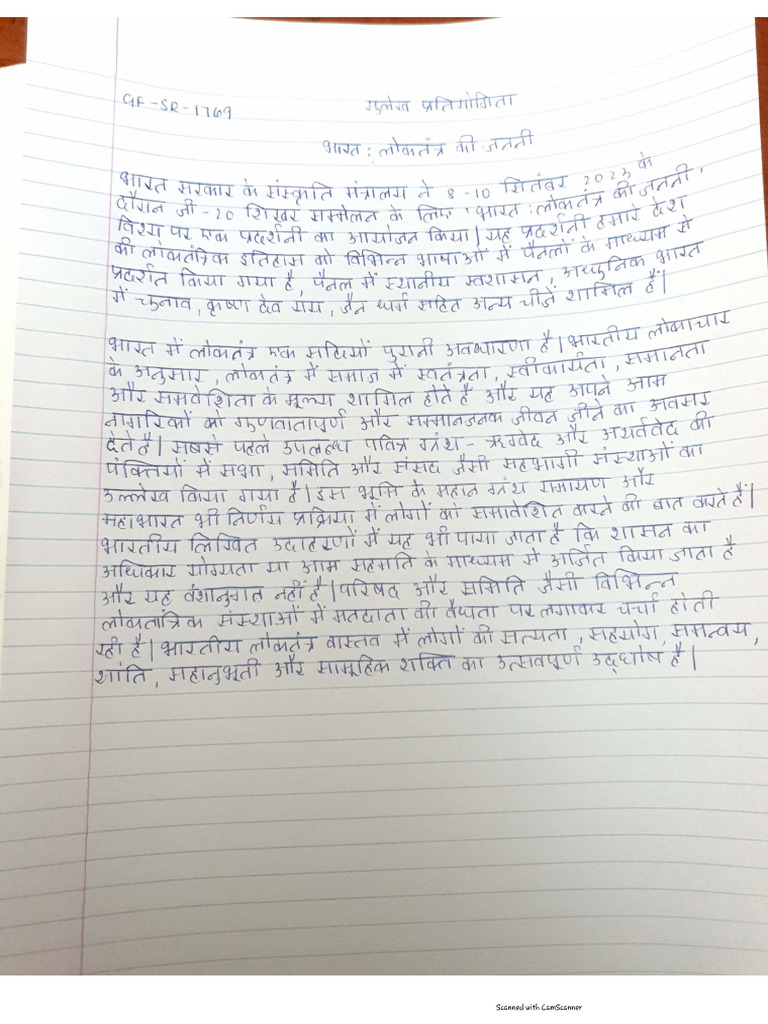 GF-SR-1769
सुलेख प्रतियोगिता
भारत : लोकतंत्र की जननी
भारत सरकार के संस्कृति मंत्रालय ने 8-10 सितंबर 2023 के
दौरान जी-20 शिखर सम्मेलन के लिए 'भारत : लोकतंत्र की जननी'
विषय पर एक प्रदर्शनी का आयोजन किया। यह प्रदर्शनी हमारे देश
की लोकतंत्रिक इतिहास को विभिन्न भाषाओं में पैनलों के माध्यम से
प्रदर्शत किया गया है, पैनल में स्थानीय स्वशासन, आधुनिक भारत
में चुनाव, कृष्ण देव राय, जैन धर्म सहित अन्य चीजें शामिल हैं।
भारत में लोकतंत्र एक सदियों पुरानी अवधारणा है। भारतीय लोकाचार
के अनुसार, लोकतंत्र में समाज में स्वतंत्रता, स्वीकार्यता, समानता
और समवेशिता के मूल्य शामिल होते हैं और यह अपने आम
नागरिकों को गुणवातापूर्ण और सम्मानजनक जीवन जीने का अवसर
देते है। सबसे पहले उपलब्ध पवित्र ग्रंथ - ऋग्वेद और अथर्ववेद की
पंक्तियों में सभा, समिति और संसद जैसी सहभागी संस्थाओं का
उल्लेख किया गया है। इस भूमि के महान ग्रंथ रामायण और
महाभारत भी निर्णय प्रक्रिया में लोगों को समावेशित करने की बात करते हैं।
भारतीय लिखित उदाहरणों में यह भी पाया जाता है कि शासन का
अधिकार योग्यता या आम सहमति के माध्यम से अर्जित किया जाता है
और यह वंशानुगत नहीं है। परिषद और समिति जैसी विभिन्न
लोकतांत्रिक संस्थाओं में मतदाता की वैधता पर लगाकार चर्चा होती
रही है। भारतीय लोकतंत्र वास्तव में लोगों की सत्यता, सहयोग, समन्वय,
शांति, सहानुभूती और सामूहिक शक्ति का उत्सवपूर्ण उद्घोष है।
Scanned with CamScanner